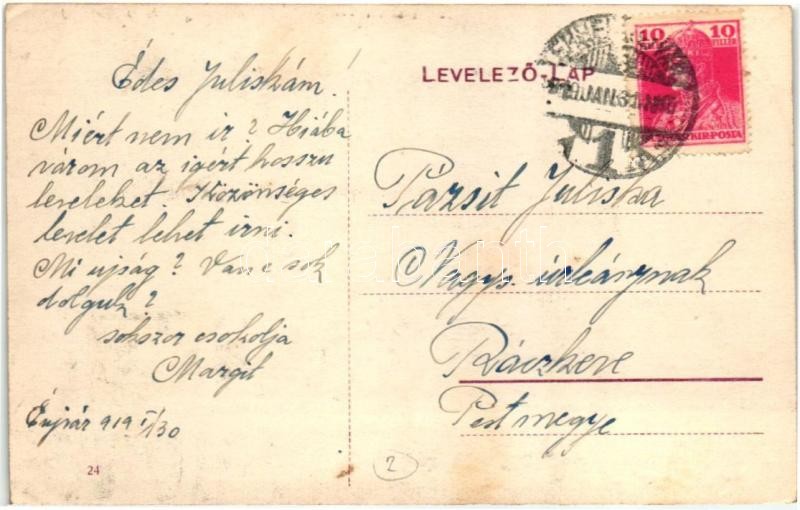 Édes Juliskám.
Miért nem ir? Hiába
várom az igért hosszu
leveleket. Közönséges
levelet lehet irni.
Mi ujság? Van e sok
dolguk?
sokszor csokolja
Margit
Érsekujvár 919 I/30
24
LEVELEZŐ-LAP
10 10
FILLÉR
MAGY. KIR. POSTA
919 JAN 31
1
Pázsit Juliska
Nagys úrleánynak
Ráczkeve
Pest megye
2